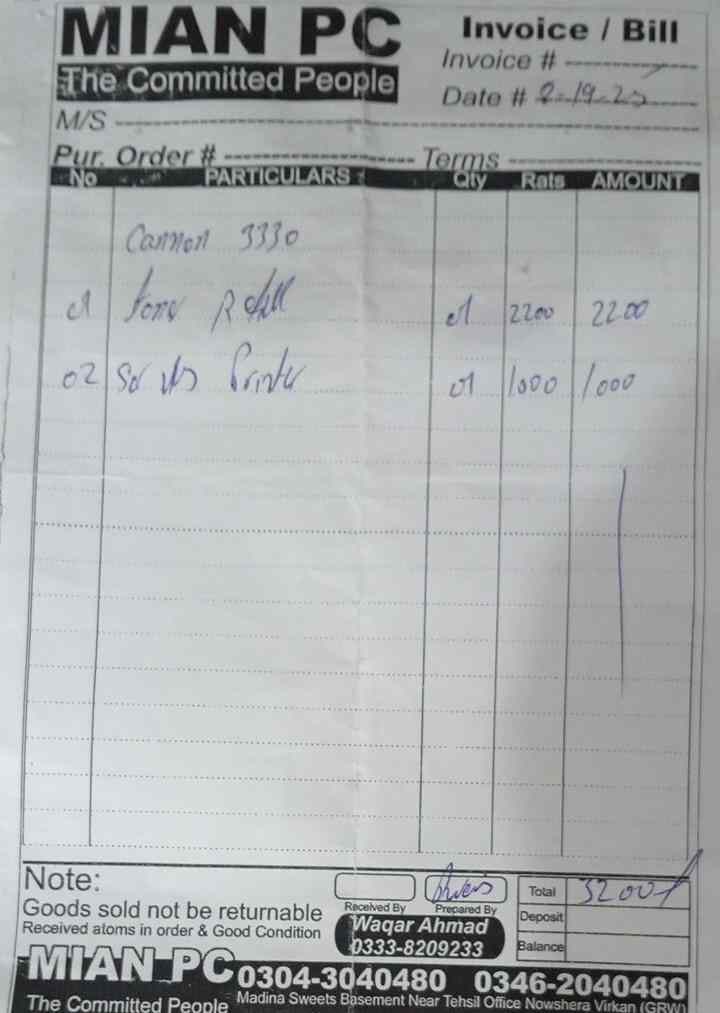 MIAN PC
The Committed People
Invoice / Bill
Invoice #
Date # 2-19-25
M/S
Pur. Order # Terms
No PARTICULARS Qty Rats AMOUNT
Cannon 3330
01 Refill 01 2200 2200
02 Printer 01 1000 1000
Note:
Goods sold not be returnable
Received atoms in order & Good Condition
Received By
Prepared By
Waqar Ahmad
0333-8209233
Total 3200/
Deposit
Balance
MIAN PC
The Committed People
0304-3040480 0346-2040480
Madina Sweets Basement Near Tehsil Office Nowshera Virkan (GRW)